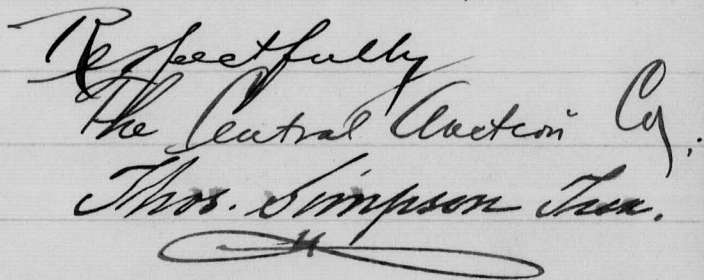 Respectfully
The Central Auction Co.
Thos. Simpson Treas.